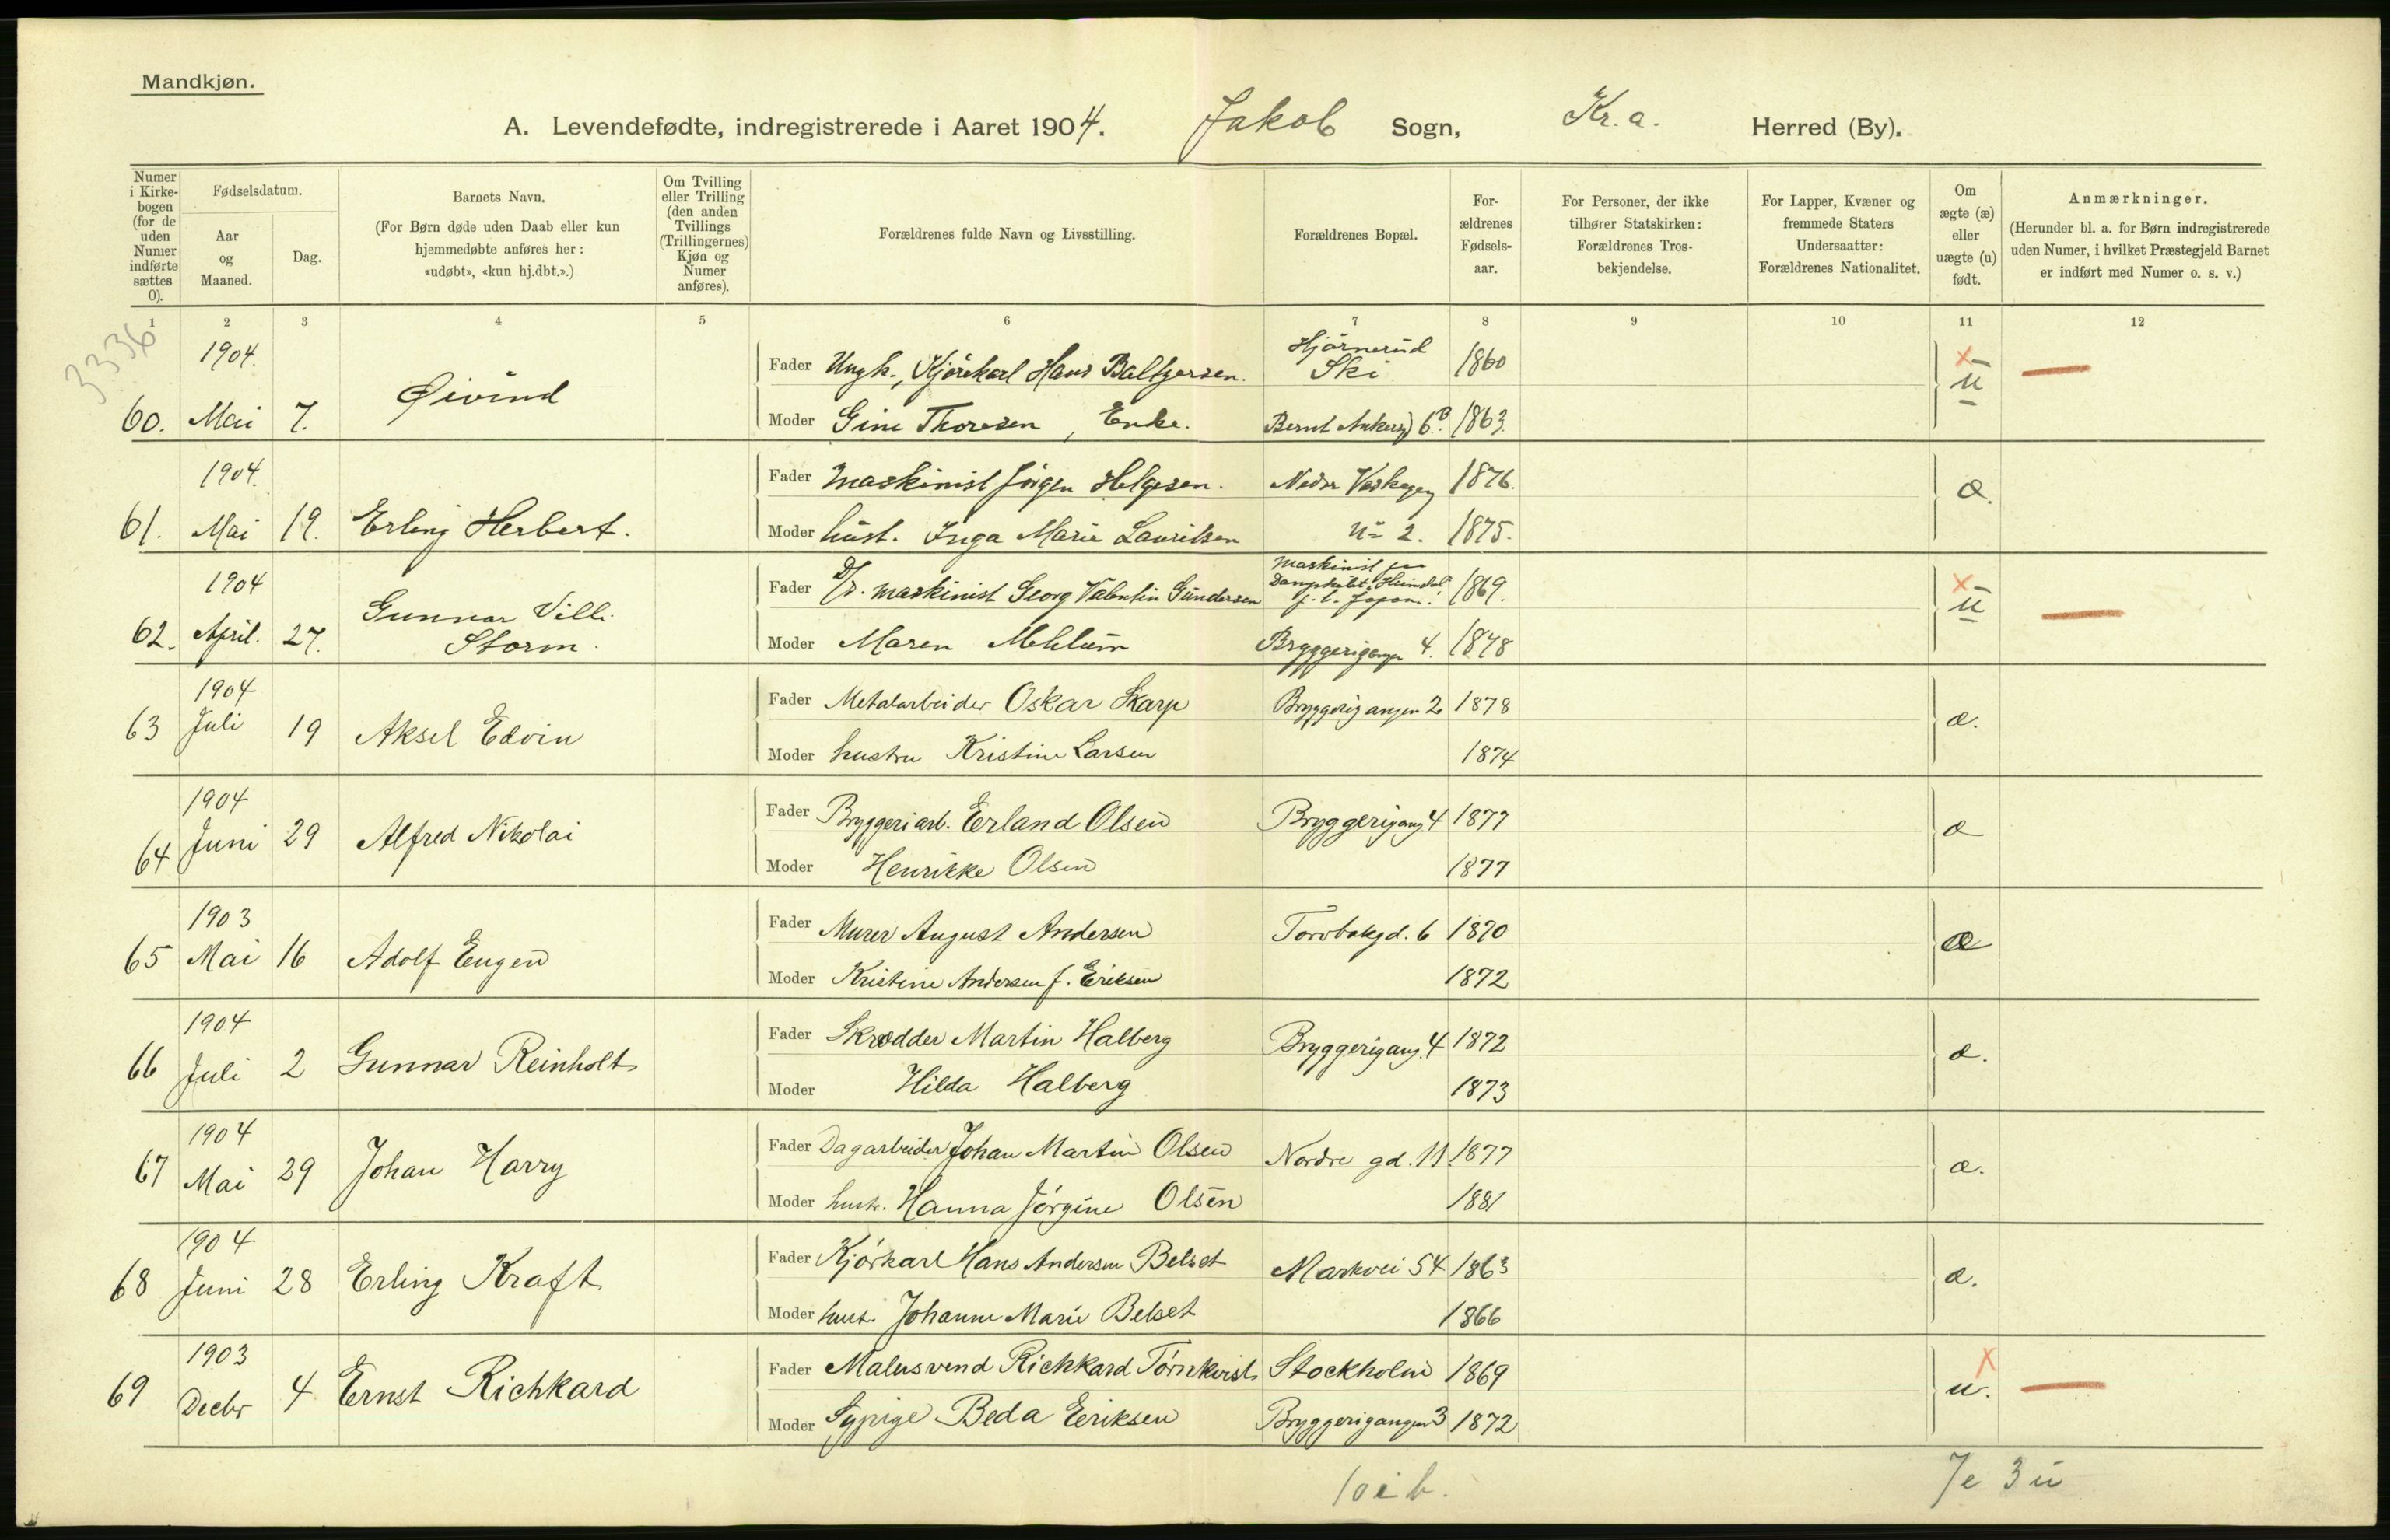 Mandkjøn.
A. Levendefødte, indregistrerede i Aaret 1904. Jakob Sogn, Kr.a. Herred (By).
Numer i Kirkebogen (for de uden Numer indførte sættes 0).
Fødselsdatum.
Aar og Maaned.
Dag.
Barnets Navn.
(For Børn døde uden Daab eller kun hjemmedøbte anføres her: «udøbt», «kun hj.dbt.».)
Om Tvilling eller Trilling (den anden Tvillings (Trillingernes) Kjøn og Numer anføres).
Forældrenes fulde Navn og Livsstilling.
Forældrenes Bopæl.
Forældrenes Fødselsaar.
For Personer, der ikke tilhører Statskirken: Forældrenes Trosbekjendelse.
For Lapper, Kvæner og fremmede Staters Undersaatter: Forældrenes Nationalitet.
Om ægte (æ) eller uægte (u) født.
Anmærkninger.
(Herunder bl. a. for Børn indregistrerede uden Numer, i hvilket Præstegjeld Barnet er indført med Numer o. s. v.)
1 2 3 4 5 6 7 8 9 10 11 12
3336
1904.
Fader Ungk., Kjørekarl Hans Baltzersen. Hjørnerud Ski 1860
60. Mai 7. Øivind u
Moder Gine Thoresen, Enke. Bernt Ankersg 6B. 1863.
1904.
Fader Maskinist Jörgen Helgesen. Nedre Vaskegg 1876.
61. Mai 19. Erling Herbert. æ.
Moder hust. Inga Marie Lauritsen No 2. 1875.
1904
Fader D/s. maskinist Georg Valentin Gundersen Maskinist paa Dampskibet Heimdal p. t. Japan. 1869.
62. April. 27. Gunnar Villi Storm. u
Moder Maren Mehlum Bryggerigangen 4. 1878
1904
Fader Metalarbeider Oskar Skarp Bryggerigangen 2 1878
63 Juli 19 Aksel Edvin æ.
Moder hustru Kristine Larsen 1874
1904
Fader Bryggeriarb. Erland Olsen Bryggerigang. 4 1877
64 Juni 29 Alfred Nikolai æ
Moder Henrikke Olsen 1877
1903
Fader Murer August Andersen Torvbakgd. 6 1870
65 Mai 16 Adolf Eugen æ
Moder Kristine Andersen f. Eriksen 1872
1904
Fader Skrædder Martin Halberg Bryggerigang. 4 1872
66 Juli 2 Gunnar Reinholt æ.
Moder Hilda Halberg 1873
1904
Fader Dagarbeider Johan Martin Olsen Nordre gd. 11 1877
67 Mai 29 Johan Harry æ.
Moder hustr. Hanna Jörgine Olsen 1881
1904
Fader Kjörkarl Hans Andersen Belset Markvei 54 1863
68 Juni 28 Erling Kraft æ.
Moder hust. Johanne Marie Belset 1866
1903
Fader Malersvend Richkard Törnkvist Stockholm 1869
69 Decbr 4 Ernst Richkard u.
Moder Sypige Beda Eriksen Bryggerigangen 3 1872
10 i b. 7e 3u